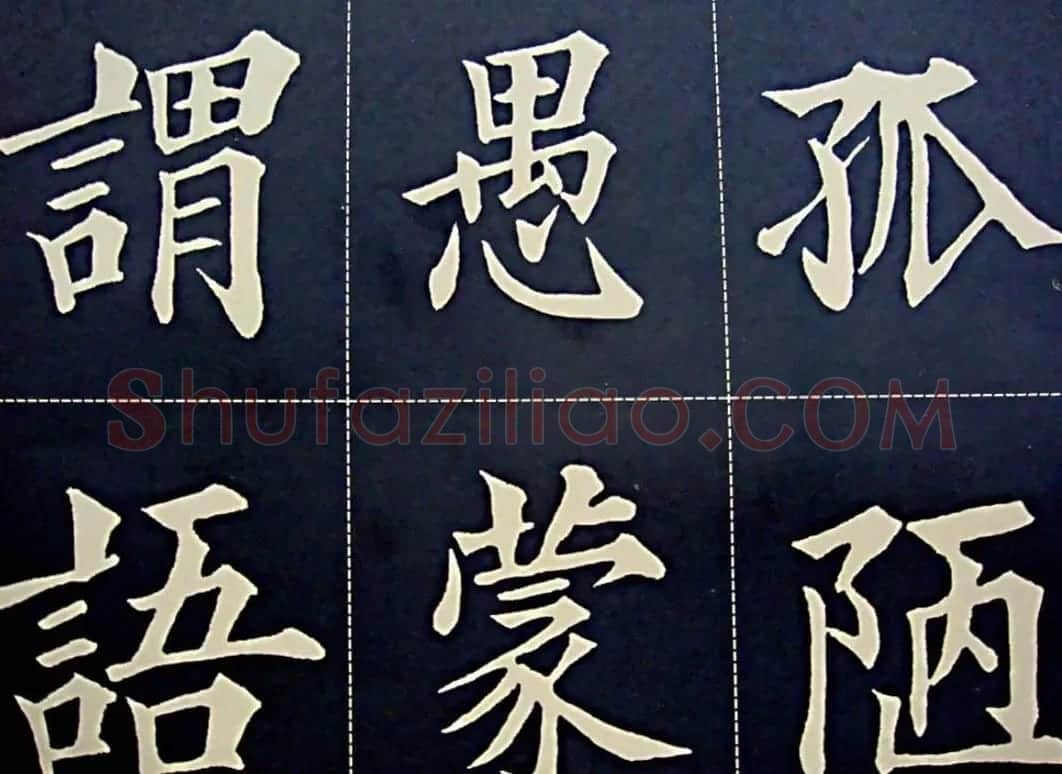 孤陋
愚蒙
謂語
Shufaziliao.COM